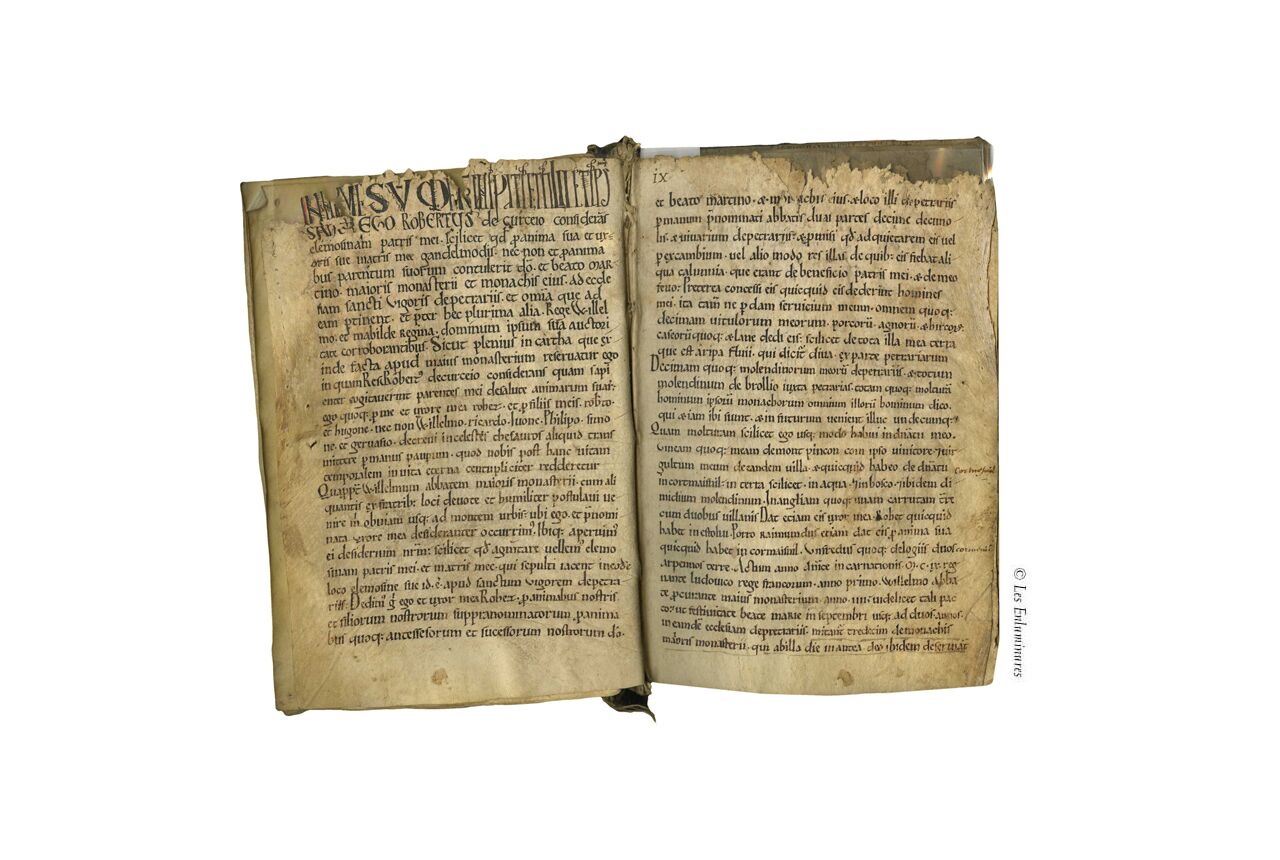 EGO ROBERTUS de curceio considerãs
elemosinam patris mei. scilicet qđ ꝓ anima sua et ux
oris sue matris mee gandelmodis. nec non et ꝓ anima
bus parentum suorum contulerit dõ. et beato mar
tino. maioris monasterii et monachis eius. ad eccle
siam sancti vigoris de petrariis. et omĩa que ad
eam ꝑtinent. et p̃ter hec plurima alia. Rege Willel
mo. et mabilde regina. dominum ipsum sua auctori
tate corroborantibus. Sicut plenius in cartha que ex
inde facta apud maius monasterium reservatur ego
in quam Robertꝰ de curceio considerans quam sapi
enter cogitaverint parentes mei de salute animarum suarꝶ
ego quoqꝫ ꝓ me et uxore mea robez. et ꝓ filiis meis. robᵗto.
et hugone. nec non Willelmo. ricardo. ivone. Philipo. simo
ne. et gervasio. decrevi in celestes thesauros aliquid trans
mittere ꝑ manus pauꝑum. quod nobis post hanc vitam
temporalem in vita eterna centupliciter redderetur
Willelmum abbatem maioris monasterii. cum ali
quantis ex fratribꝫ loci devote et humiliter postulavi ve
nire m̃ obviam usqꝫ ad montem urbis. ubi ego. et p̃nomi
nata uxore mea desideranter occurrimꝰ. Ibiqꝫ aperuimꝰ
ei desiderium nr̃m. scilicet qđ augmentare vellemꝰ elemo
sinam patris mei. et matris mee. qui sepulti iacent in eođ
loco elemosine sue id. ẽ. apud sanctum vigorem de petra
riis. Dedimꝰ g̊ ego et uxor mea Robez. ꝓ animabus nostris
et filiorum nostrorum suppranominatorum. ꝓ anima
bus quoqꝫ antessesorum et sucessorum nostrorum dõ.
ix
et beato martino. & monachis eius. & loco illi de petrariis
ꝑ manum p̃nominati abbatis duas partes decime de cimo
lis. & vivarium de petrariis. & ꝓmisi qđ adquietarem eis vel
ꝑ excambium. vel alio modo res illas de quibꝫ eis fiebat ali
qua calumnia. que erant de beneficio patris mei. & de meo
fevo. Preterea concessi eis quicquid eis dederint homines
mei. ita tam̃ ne ꝑdam servicium meum. omnem quoqꝫ
decimam vitulorum meorum. porcorũ. agnorũ. & bircorꝶ.
caseorũ quoqꝫ & lane dedi eis. scilicet de tota illa mea terra
que est a ripa fluvii. qui dicit̃ diva. ex parte petrariarum
Decimam quoqꝫ molendinorum meorũ de petrariis. & totum
molendinum de brollio iuxta petrarias. totam quoqꝫ molturã
hominum ipsorũ monachorum omnium illorũ hominum dico.
qui & iam ibi sunt. & in futurum venient illuc undecumqꝫ.
Quam molturam scilicet ego usqꝫ modo habui in dnatu meo.
Vineam quoqꝫ meam de mont pincon cum ipso vinitore. 7 vir
gultum meum de tandem villa. & quicquid habeo de dnatu
in cormaisnil. in terra scilicet. in aqua. 7 in bosco. 7 ibidem di
midium molendinum. In angliam quoqꝫ unam carrucam tr̃e
cum duobus villanis. Dat etiam eis uxor mea. Robez quicquid
habet in essolvi. Porro raimundus etiam dat eis ꝓ anima sua
quicquid habet in cormaisnil. Unfredus quoqꝫ de logiis duos
arpennos terre. Actum anno
nante ludovico rege francorum. anno primo. Willelmo abba
te ꝓcurante maius monasterium. anno
festivitate beate marie in septembri usqꝫ ad duos annos.
in eandẽ ecclesiam de pretrariis. mitant tredecim de monachis
maioris monasterii. qui ab illa die in antea dõ ibidem deserviant